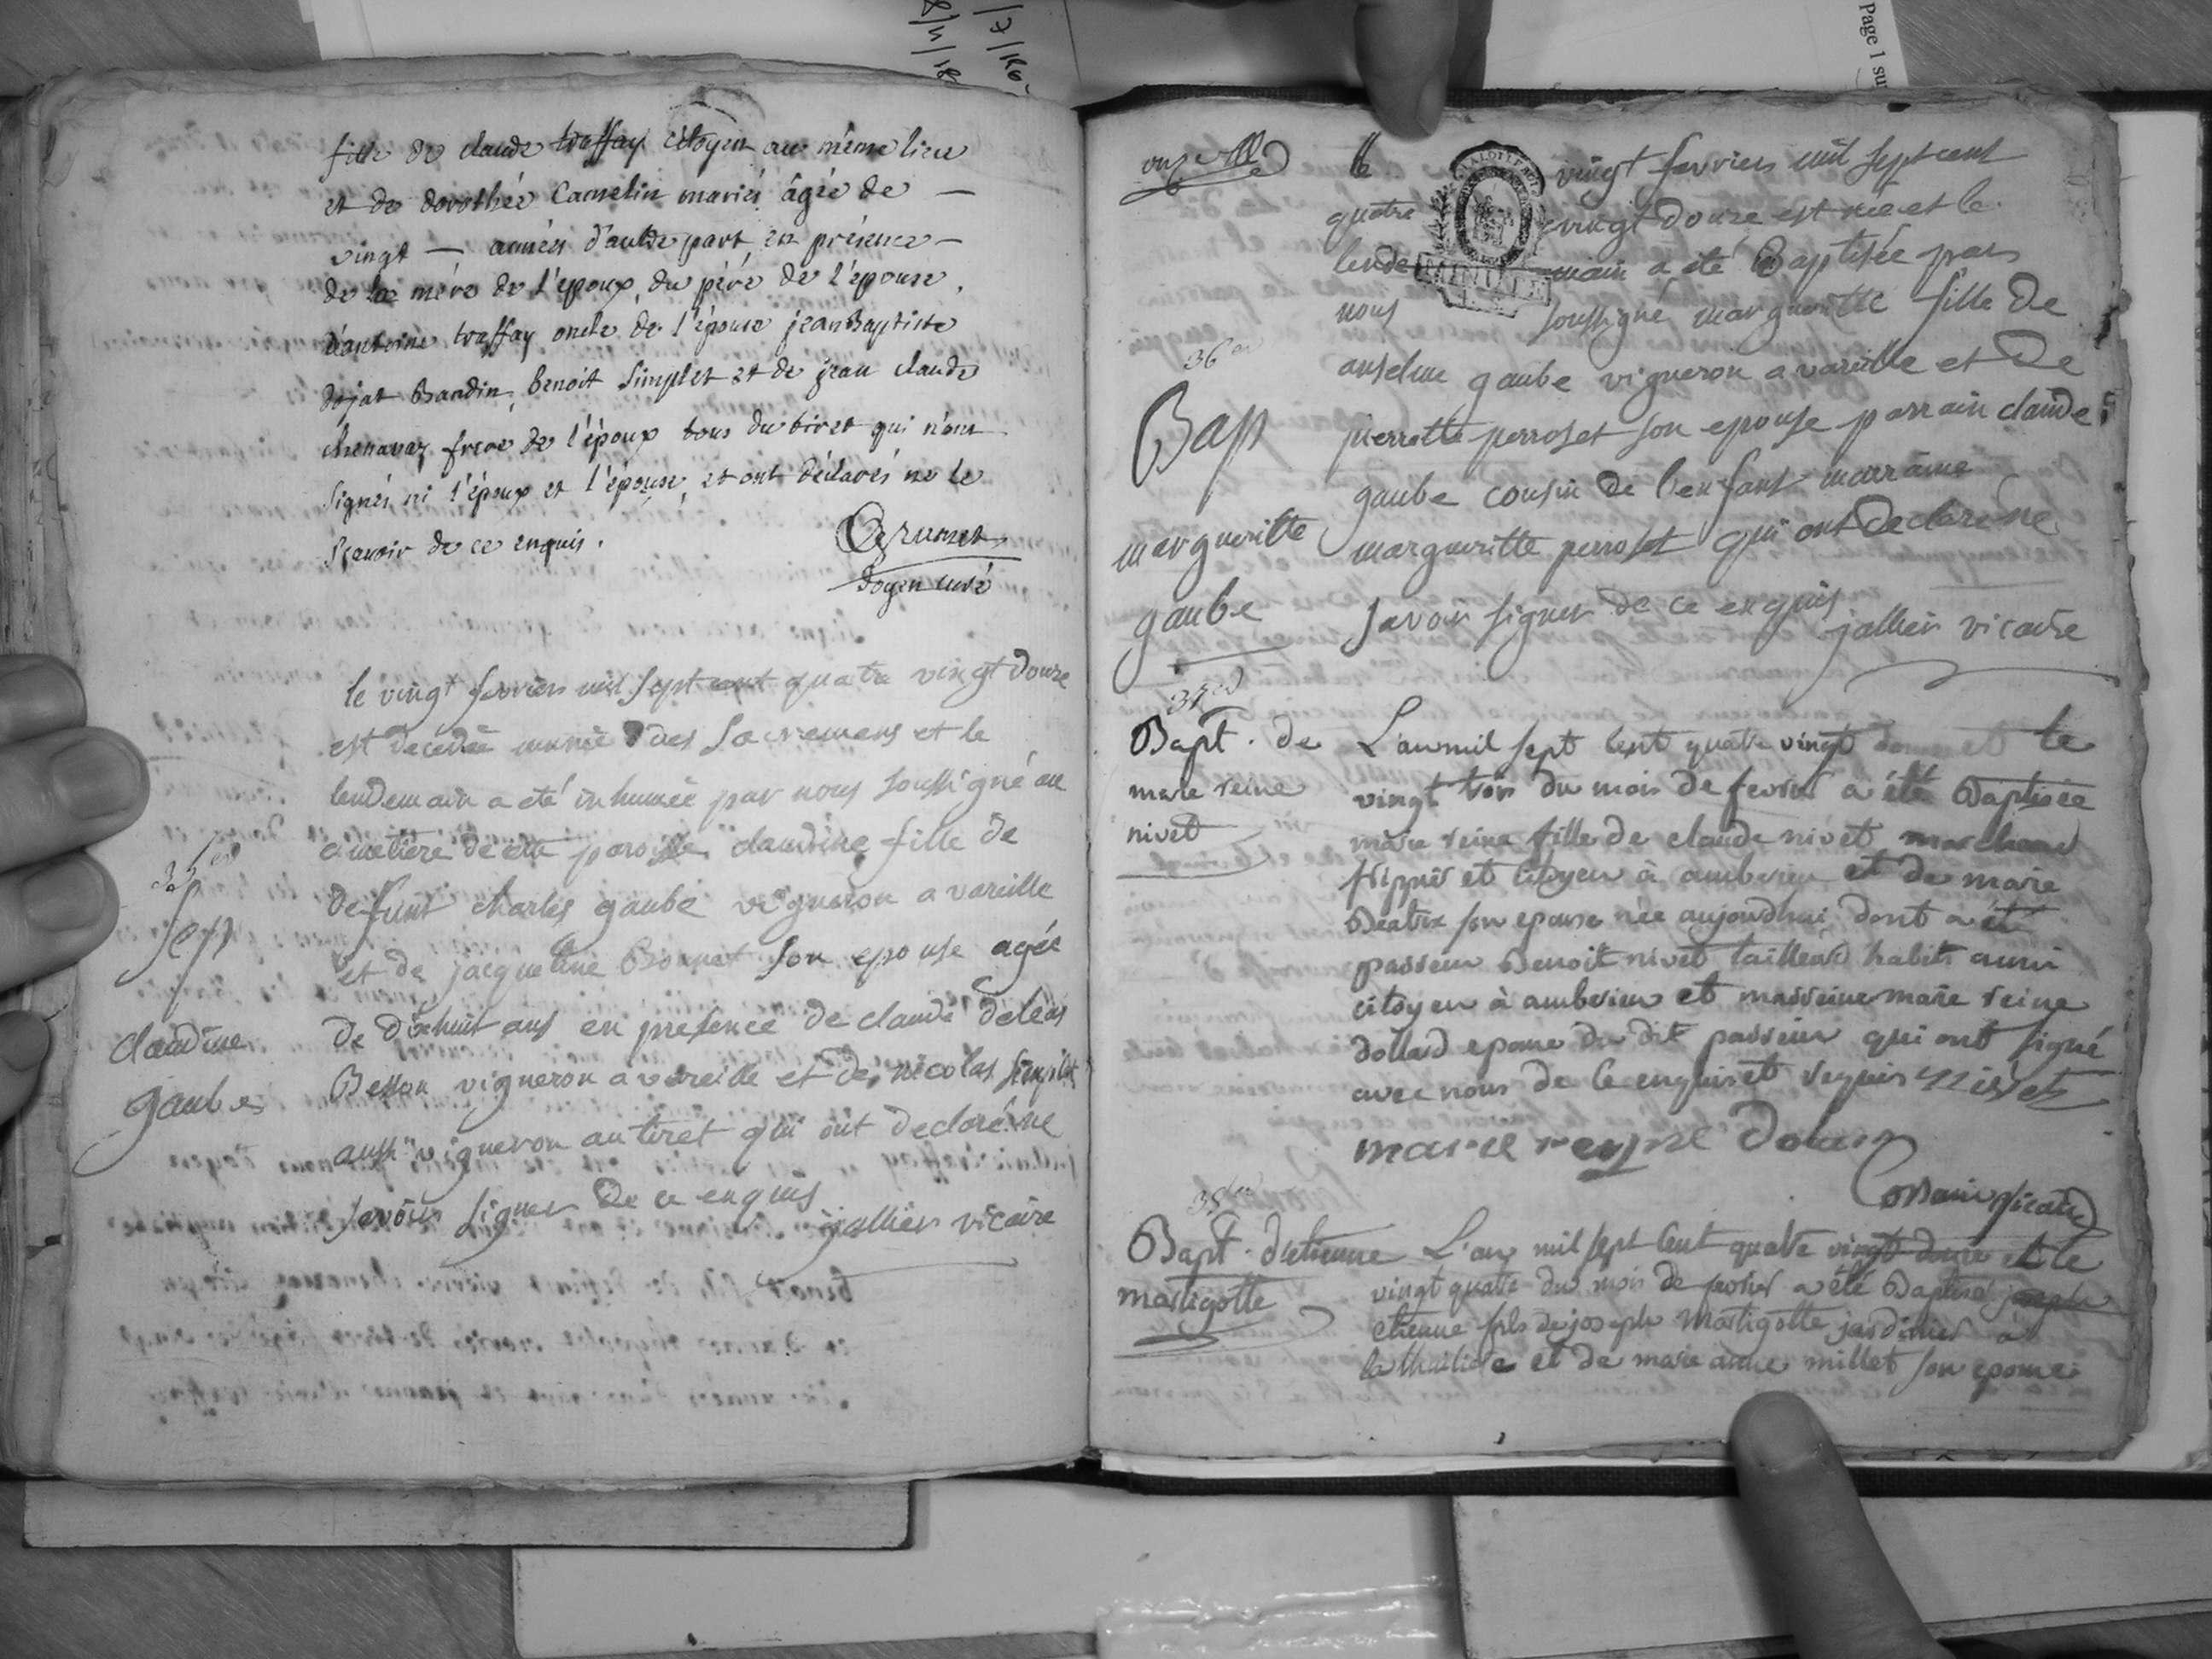 fille de claude traffay citoyen au même lieu
et de dorothée Camelin mariés âgée de —
vingt — années d'autre part en présence —
de la mére de l'époux, du pére de l'épouse,
d'antoine traffay oncle de l'épouse jean Baptiste
dojat Bandin, benoit Simplet et de jean claude
chenavaz frere de l'époux tous du tiret qui n'ont
signés ni l'époux et l'épouse, et ont déclarés ne le
sçavoir de ce enquis.
Grumet
doyen curé
le vingt fevrier mil sept cent quatre vingt douze
est decedée munie des sacremens et le
lendemain a été inhumée par nous soussigné au
cimetiere de cette paroisse claudine fille de
35
Sep
claudine
gaube
defunt charles gaube vigneron a vareille
et de jacqueline Bonnet son epouse agée
de dixhuit ans en presence de claude deléas
Besson vigneron a vareille et de nicolas simplet
aussi vigneron au tiret qui ont declaré ne
savoir signer de ce enquis
jallier vicaire
onze
le vingt fevrier mil sept cent
quatre vingt douze est née et le
lendemain a été Baptisée par
nous soussigné margueritte fille de
36
Bap
margueritte
gaube
anselme gaube vigneron a vareille et de
pierrette perroset son epouse parrain claude
gaube cousin de l'enfant marraine
margueritte perroset qui ont declaré ne
savoir signer de ce enquis
jallier vicaire
37
Bapt. de
marie reine
nivet
L'an mil sept cent quatre vingt douze et le
vingt trois du mois de fevrier a été Baptisée
marie reine fille de claude nivet marchand
frippier et citoyen à amberieu et de marie
Beatrix son epouse née aujourdhui dont a été
parrein Benoit nivet tailleur d habits aussi
citoyen à amberieu et marreine marie reine
dollard epouse du dit parrein qui ont signé
avec nous de ce enquis et requis nivet
marie reyne dolard
vicaire
38
Bapt. d'etienne
martigotte
L'an mil sept cent quatre vingt douze et le
vingt quatre du mois de fevrier a été Baptisé joseph
etienne fils de joseph martigotte jardinier à
la thuiliere et de marie anne millet son epouse
Page 1 su